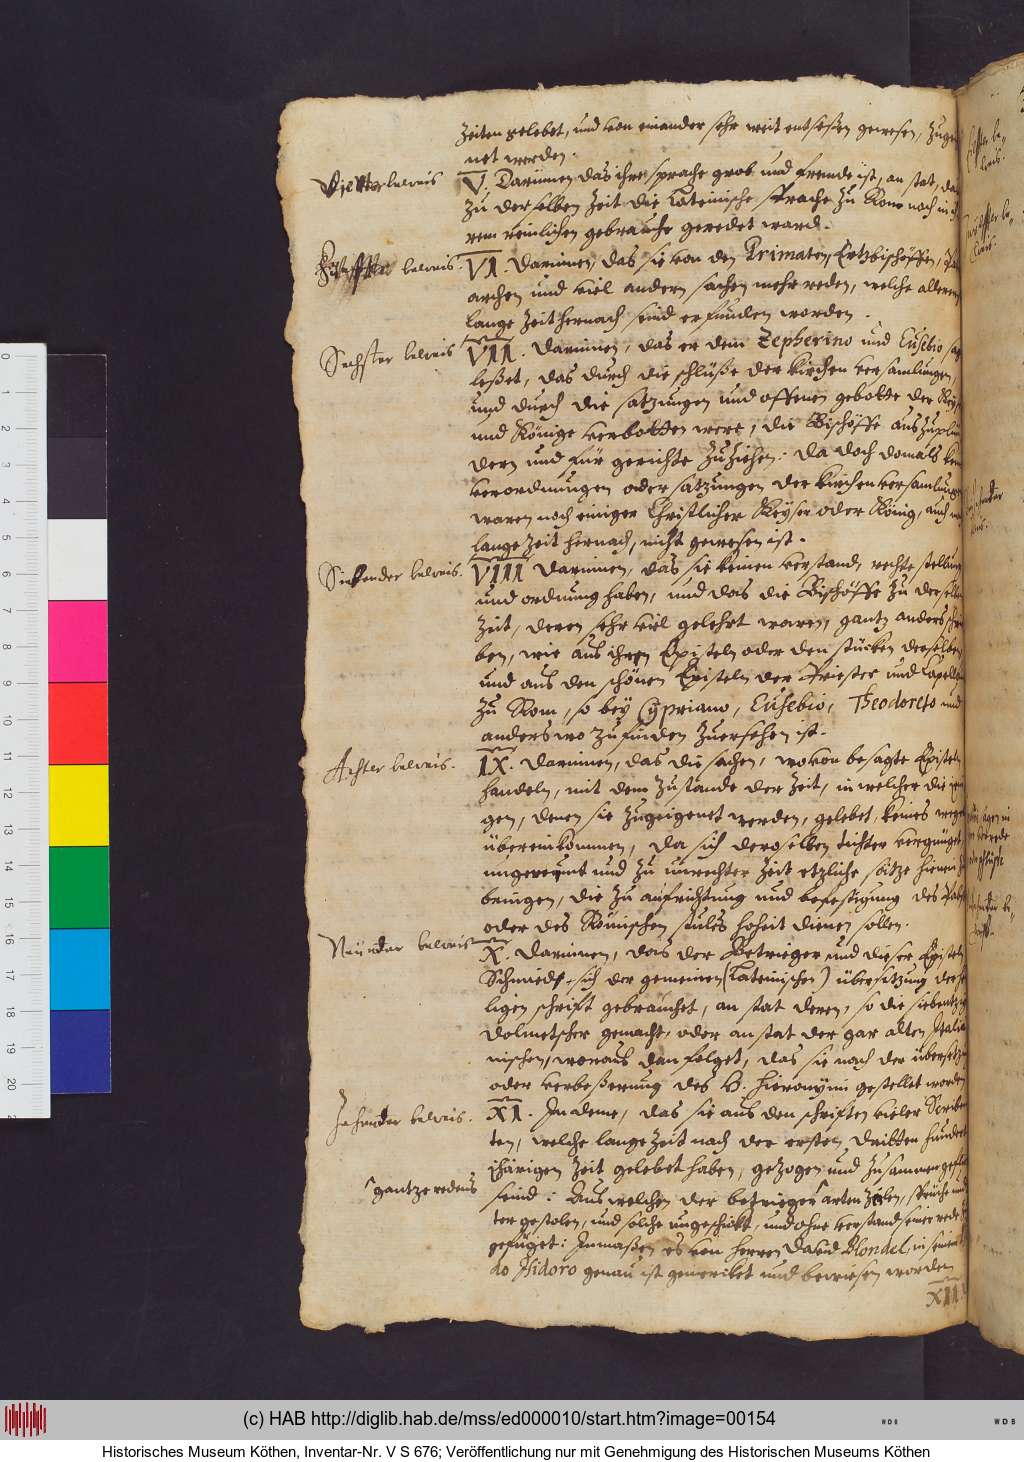 zeiten gelebet, und von einander sehr weit entseßen gewesen, zuge
net werden.
Vierter beweis
V. Darinnen das ihre sprache grob und fremde ist, an stat, das
zu derselben zeit die Lateinische sprache zu Rom noch in
rem reinlichen gebrauche geredet ward.
beweis.
VI. Darinnen, das sie von den Primaten, Ertzbischöffen,
archen und viel andern sachen mehr reden, welche allererst
lange zeit hernach seind erfunden worden.
Sechster beweis
VII. Darinnen, das er dem Zepherino und Eusebio
leßet, das durch die schlüße der kirchen versamlungen,
und durch die satzungen und offenen gebotte der Keys
und Könige verbotten were, die Bischöffe auszuplün
dern und für gerichte zu ziehen: da doch domals kein
verordnungen oder satzungen der kirchen versamlungen
waren noch einiger Christlicher Keyser oder König, auch
lange zeit hernach, nicht gewesen ist.
Siebender beweis.
VIII Darinnen, das sie keinen verstand, rechte stellung
und ordnung haben, und das die Bischöffe zu derselben
zeit, deren sehr viel gelehrt waren, gantz anders schrie
ben, wie aus ihren Episteln oder den stücken derselben
und aus den schönen Episteln der Priester und
zu Rom, so bey Cypriano, Eusebio, Theodoreto und
anderswo zu finden zuersehen ist.
Achter beweis.
IX. Darinnen, das die sachen, wovon besagte Episteln
handeln, mit dem zustande der zeit, in welcher die
gen, denen sie zugeeignet werden, gelebet, keines weges
übereinkommen, da sich deroselben tichter vergnüget
ungereumt und zu unrechter zeit etzliche sätze hienein
bringen, die zu aufrichtung und befestigung des Pabst
oder des Römischen stules hoheit dienen sollen.
Neünder beweis
X. Darinnen, das der Betrieger und dieser Episteln
Schmied, sich der gemeinen (Lateinischen) übersitzung der
ligen schrift gebrauchet, an stat deren, so die siebentzig
dolmetscher gemacht, oder an stat der gar alten Italia
nischen, woraus dan folget, das sie nach der übersetzung
oder verbeßerung des H. Hieronymi gestellet worden
Zehender beweis.
XI. In deme, das sie aus den schriften vieler Scriben
ten, welche lange zeit nach der ersten, dritten hundert
ihärigen zeit gelebet haben, gezogen und zusammen
seind: Aus welchen der betrieger ^ arten zeilen, sprüche und
^ gantze redens
ter gestolen, und solche ungeschikt, und ohne verstand seiner rede
gefüget: Inmaßen es von herren David Blondel, in seinem
do Isidoro genau ist gemercket und bewiesen worden
XII
(c) HAB http://diglib.hab.de/mss/ed000010/start.htm?image=00154
WDB
WDB
Historisches Museum Köthen, Inventar-Nr. V S 676; Veröffentlichung nur mit Genehmigung des Historischen Museums Köthen